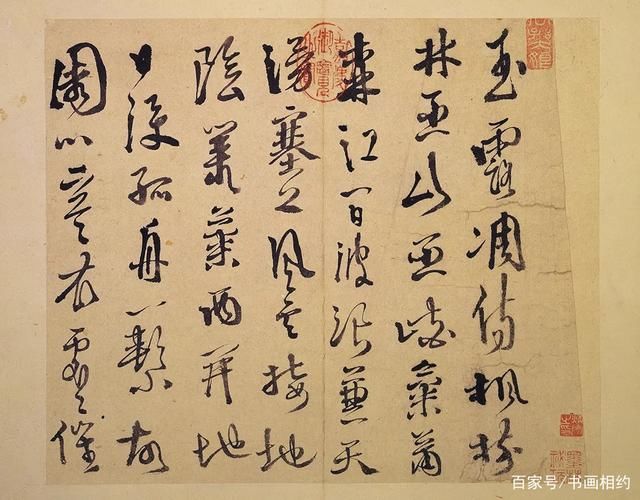 玉露凋傷楓樹
林巫山巫峽氣蕭
森江間波浪兼天
湧塞上風雲接地
陰叢菊兩開他
日淚孤舟一繫故
園心寒衣處〻催
百家号/书画相约